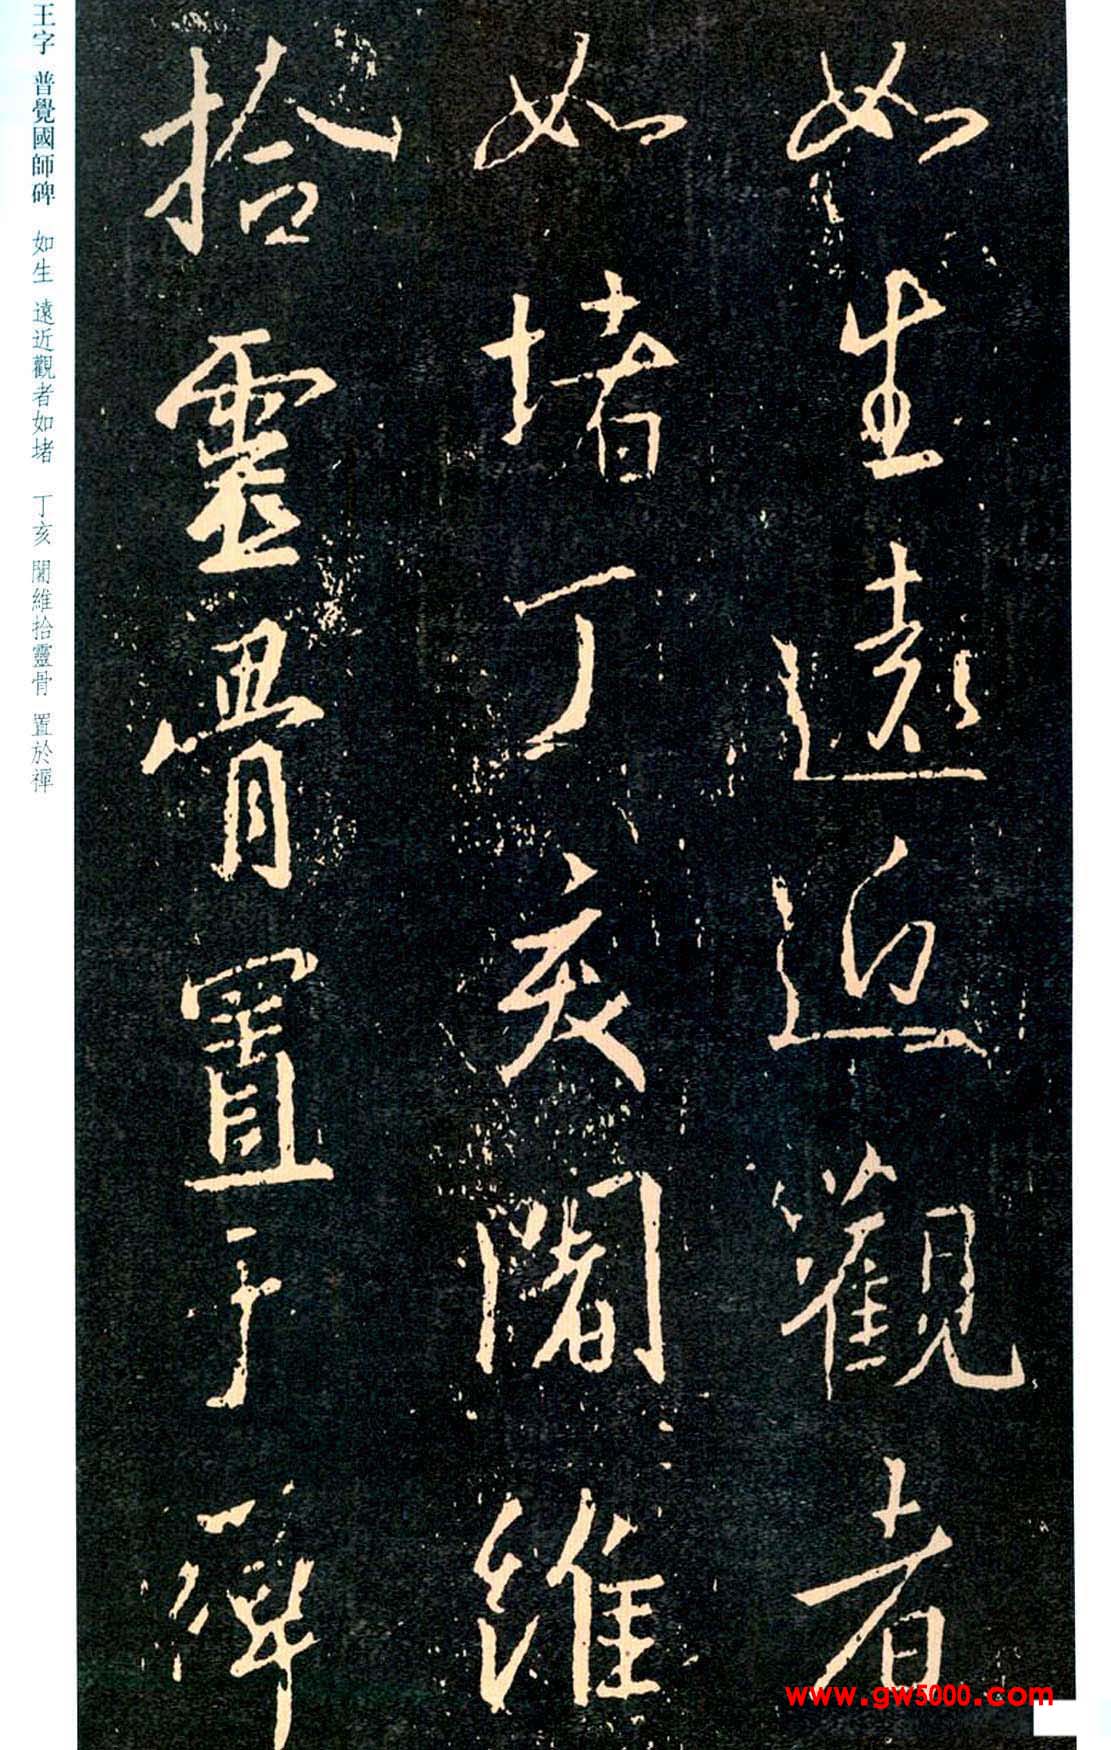 如生遠近觀者
如堵丁亥闍維
拾靈骨置于禪
王字 普覺國師碑 如生 遠近觀者如堵 丁亥 闍維拾靈骨 置於禪
www.gw5000.com